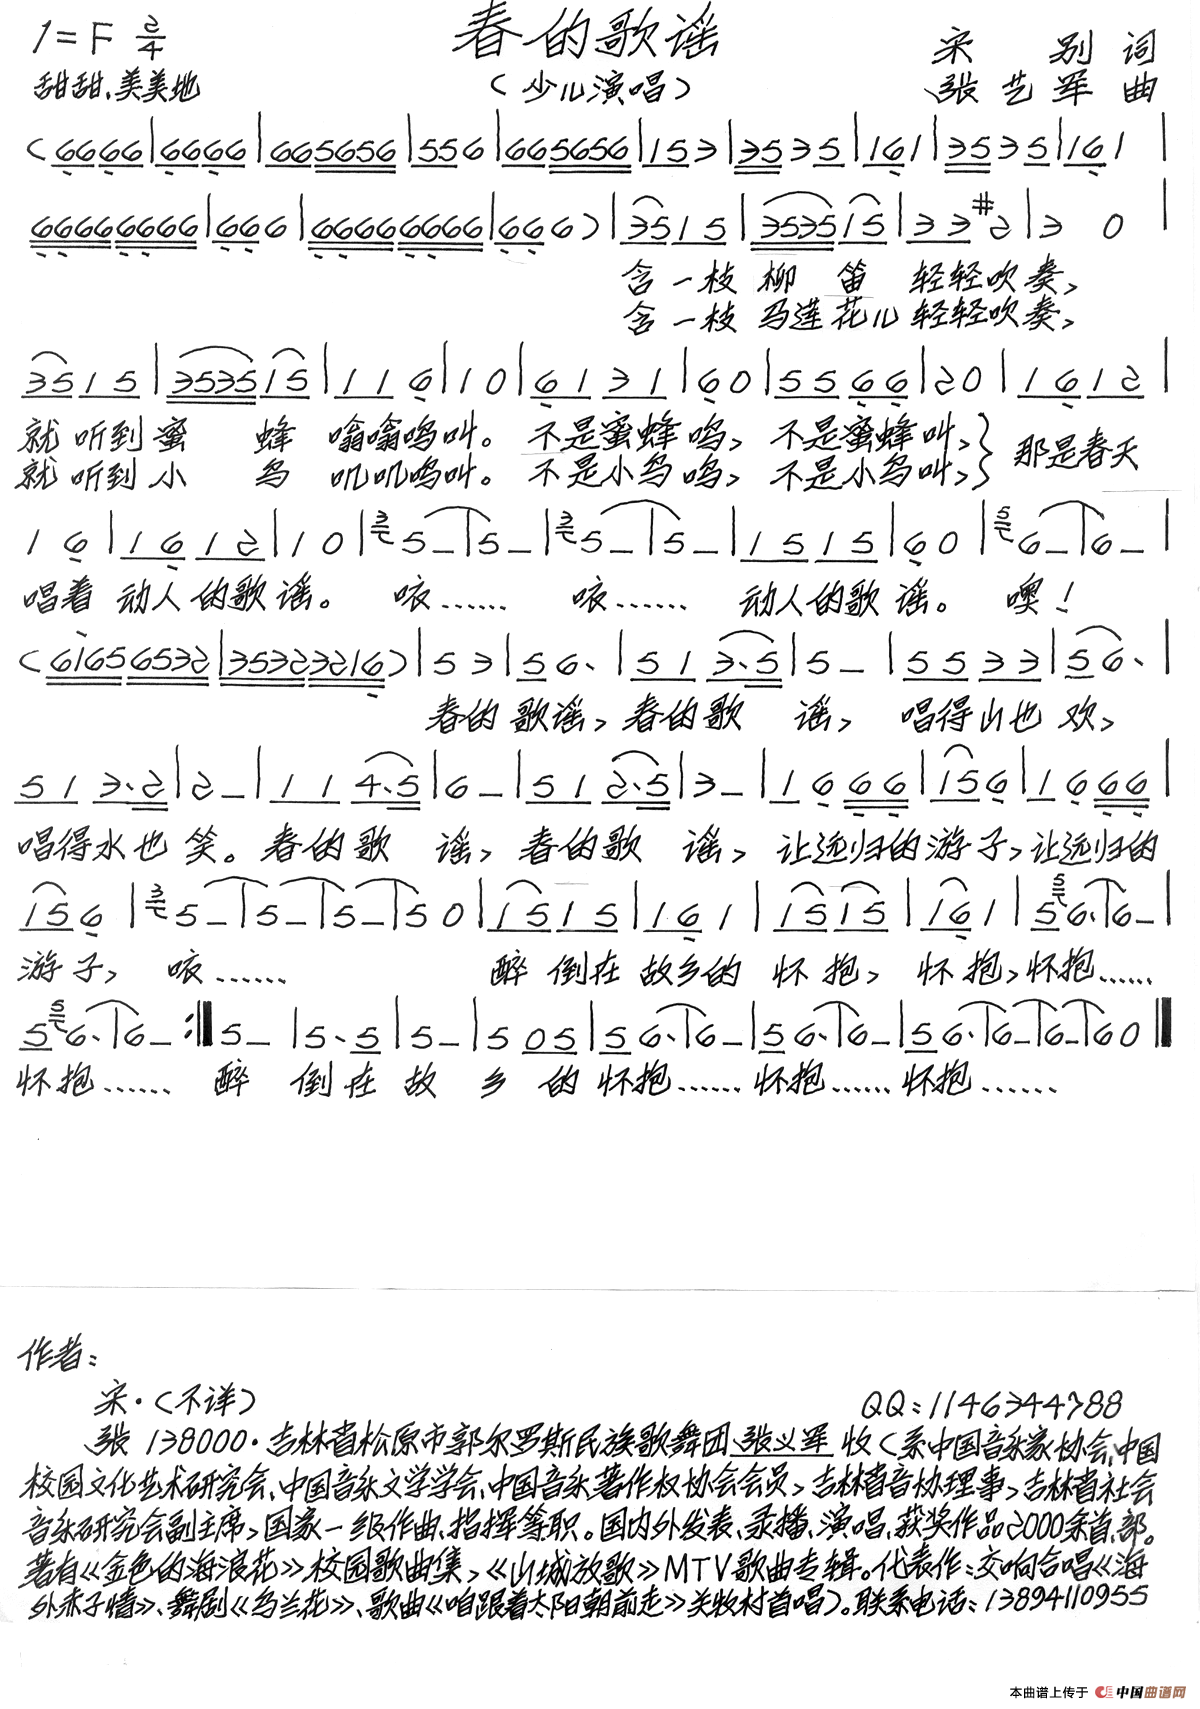 春的歌谣
1=F 2/4
宋 别 词
甜甜、美美地
（少儿演唱）
张艺军 曲
（6666|6666|665656|556|665656|153|3535|161|3535|161|
66666666|666|66666666|666）|3515|353515|33#2|3 0|
含一枝柳笛 轻轻吹奏，
含一枝马莲花儿轻轻吹奏，
3515|353515|116|10|6131|60|5566|20|1612|
就听到蜜 蜂 嗡嗡鸣叫。不是蜜蜂鸣，不是蜜蜂叫，}那是春天
就听到小 鸟 叽叽鸣叫。不是小鸟鸣，不是小鸟叫，}
1 6|1612|10|3 5–|5–|3 5–|5–|1515|60|5 6–|6–|
唱着 动人的歌谣。 咳…… 咳…… 动人的歌谣。 噢！
（61656532|35323216）|53|56.|513.5|5–|5533|56.|
春的歌谣，春的歌 谣， 唱得山也 欢，
513.2|2–|114.5|6–|512.5|3–|1666|156|1666|
唱得水也笑。春的歌 谣，春的歌 谣，让远归的游子，让远归的
156|3 5–|5–|5–|50|1515|161|1515|161|5 5 6.|6–|
游子， 咳…… 醉倒在故乡的怀抱， 怀抱，怀抱……
5 5 6.|6–:|5–|5.5|5–|505|56.|6–|56.|6–|56.|6–|6–|60‖
怀抱…… 醉 倒在故 乡 的怀抱……怀抱……怀抱……
作者：
宋·（不详）
QQ：1146344788
张 138000·吉林省松原市郭尔罗斯民族歌舞团 张义军 收（系中国音乐家协会、中国
校园文化艺术研究会、中国音乐文学学会、中国音乐著作权协会会员，吉林省音协理事，吉林省社会
音乐研究会副主席，国家一级作曲、指挥等职。国内外发表、录播、演唱、获奖作品2000余首、部。
著有《金色的海浪花》校园歌曲集，《山城放歌》MTV歌曲专辑。代表作：交响合唱《海
外赤子情》、舞剧《乌兰花》、歌曲《咱跟着太阳朝前走》关牧村首唱）。联系电话：13894110955
本曲谱上传于 中国曲谱网